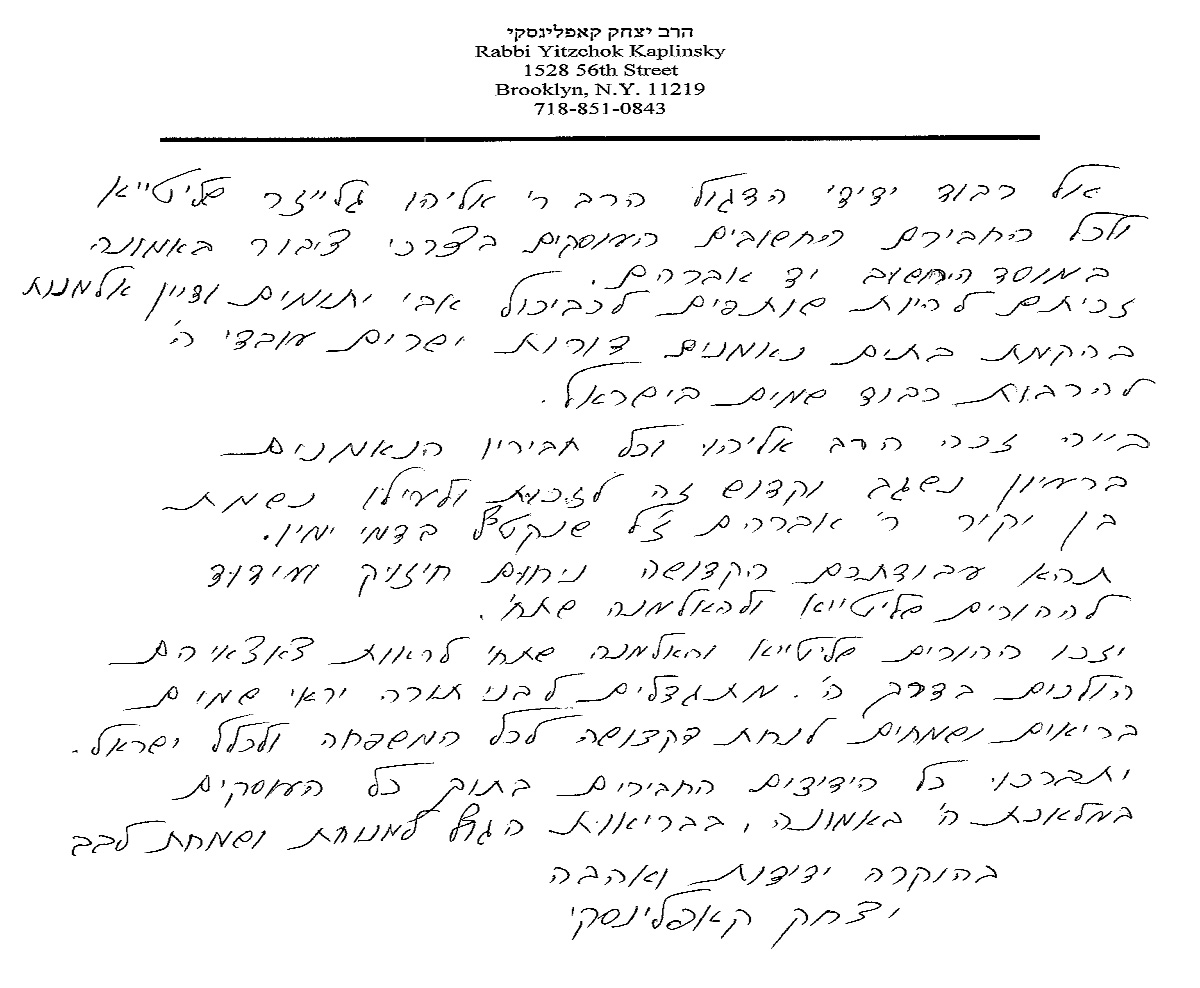 הרב יצחק קאפלינסקי
Rabbi Yitzchok Kaplinsky
1528 56th Street
Brooklyn, N.Y. 11219
718-851-0843
אל כבוד ידידי הדגול הרב ר' אליהו גלייזר שליטייא
ולכל החבירם החשובים העוסקים בצרכי ציבור באמונה
במוסד החשוב יד אברהם.
זכיתם להיות שותפים לכביכול אבי יתומים ודיין אלמנות
בהקמת בתים נאמנים דורות ישרים עובדי ה'
להרבות כבוד שמים בישראל.
זכה הרב אליהו וכל חביריו הנאמנים
ברעיון נשגב וקדוש זה לזכות ולעילוי נשמת
בן יקיר ר' אברהם ז"ל שנקטף בדמי ימיו.
תהא עבודתכם הקדושה ניחום חיזוק ועידוד
לההורים שליטייא ולהאלמנה שתח'.
יזכו ההורים שליטייא והאלמנה שתחי לראות צאצאיהם
הולכים בדרך ה'. מתגדלים לבני תורה יראי שמים
בריאים ושמחים לנחת דקדושה לכל המשפחה ולכלל ישראל.
יתברכו כל הידידים החבירים בתוך כל העוסקים
במלאכת ה' באמונה, בבריאות הגוף למנוחת ושמחת לבב
בהוקרה ידידות ואהבה
יצחק קאפלינסקי